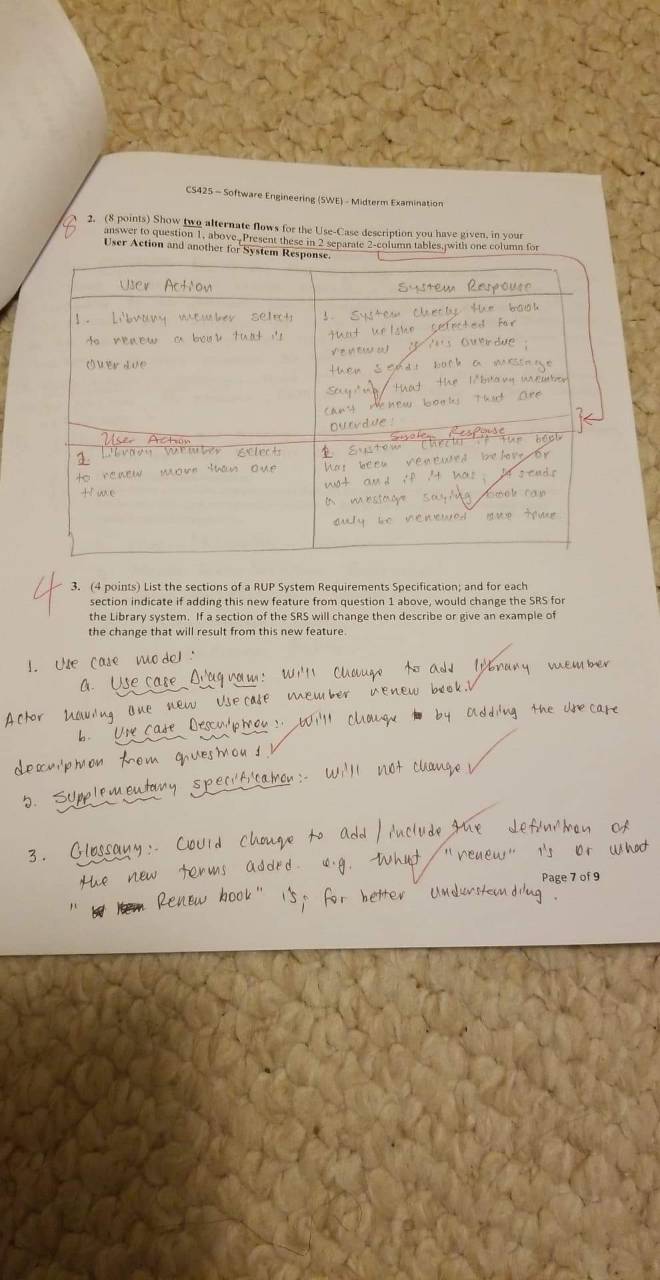 CS425 – Software Engineering (SWE) - Midterm Examination
8
2. (8 points) Show two alternate flows for the Use-Case description you have given, in your
answer to question 1, above. Present these in 2 separate 2-column tables, with one column for
User Action and another for System Response.
User Action
System Response
1. Library member selects
to renew a book that is
overdue
1. System checks the book
that he/she selected for
renewal if it's overdue;
then sends back a message
saying that the library member
can't renew books that are
overdue.
User Action
System Response
Library member selects
to renew more than one
time
System checks if the book
has been renewed before or
not and if it has, it sends
a message saying book can
only be renewed one time
4
3. (4 points) List the sections of a RUP System Requirements Specification; and for each
section indicate if adding this new feature from question 1 above, would change the SRS for
the Library system. If a section of the SRS will change then describe or give an example of
the change that will result from this new feature.
1. Use case model:
a. Use case Diagram: will change to add library member
Actor having one new use case member renew book.
b. Use case Description:. will change by adding the use case
description from question 1.
2. Supplementary specification:- will not change
3. Glossary:- Could change to add/include the definition of
the new terms added. e.g. what "renew" is or what
Page 7 of 9
" Renew book" is, for better understanding.